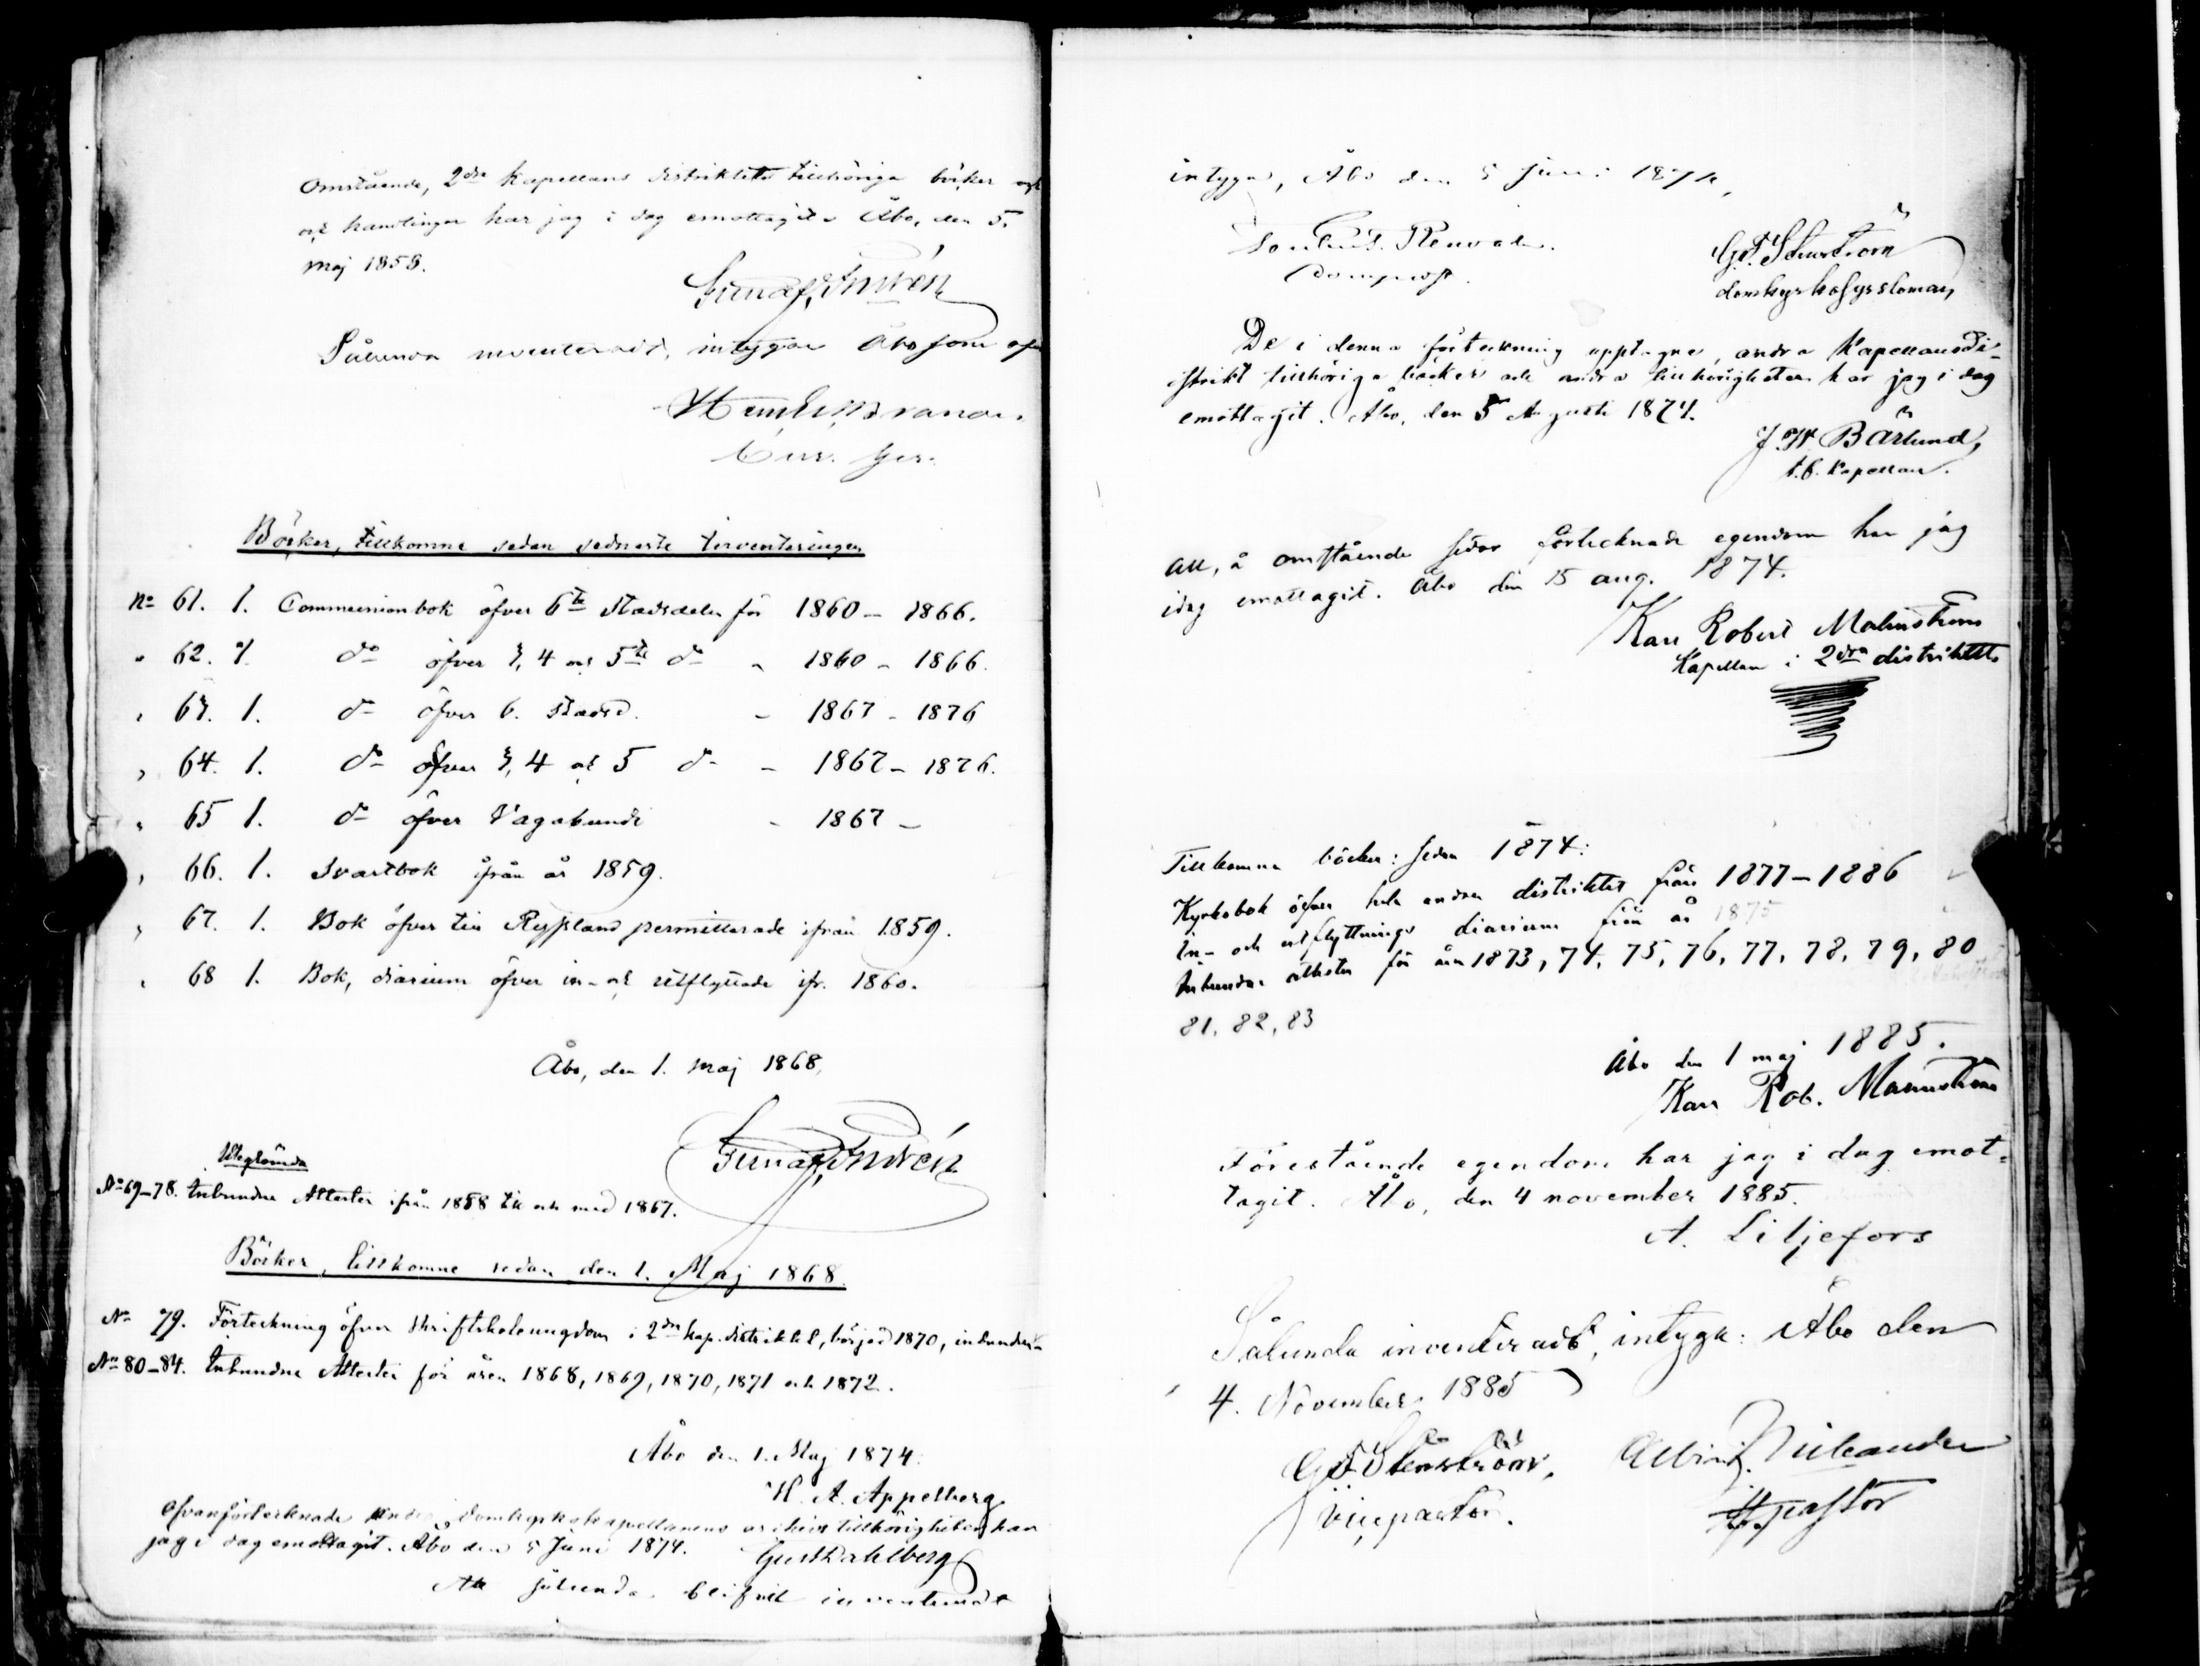 Omstående, 2dra Kapellans distriktets tillhöriga böcker
och handlingar har jag i dag emottagit. Åbo, den 5.
Maj 1858.
Sålunda inventeradt, intygar Åbo som ofvan
Böcker, tillkomne sedan sednaste Inventeringen
No 61. 1. Communionbok öfver 6te Stadsdelen för 1860 – 1866.
" 62. 1. do öfver 3, 4 och 5te do " 1860 – 1866.
" 63. 1. do öfver 6. Stadsd. " 1867 – 1876
" 64. 1. do öfver 3, 4 och 5 do – 1867 – 1876.
" 65 1. do öfver Vagabunde " 1867 –
" 66. 1. Svartbok ifrån år 1859.
" 67. 1. Bok öfver till Ryssland permitterade ifrån 1859.
" 68 1. Bok, diarium öfver in- och utflyttade ifr. 1860.
Åbo, den 1. Maj 1868,
Uteglömda
No 69–78. Inbundne Attester ifrån 1858 till och med 1867.
Böcker, tillkomne sedan den 1. Maj 1868.
No 79. Förteckning öfver Skriftskoleungdom i 2dra kap. distriktet, börjad 1870, inbunden
No 80–84. Inbundne Attester för åren 1868, 1869, 1870, 1871 och 1872.
Åbo den 1. Maj 1874.
H. A. Appelberg
Ofvanförtecknade domkyrkokapellanens archiv tillhörigheter har
jag i dag emottagit. Åbo den 5 Juni 1874. Gust Dahlberg
Att sålunda blifvit inventeradt
intygas, Åbo den 5 Juni 1874,
Renvall
Domprost.
G. F. Stenström
domkyrkosyssloman,
De i denna förteckning upptagne, andra Kapellansdi-
strikt tillhöriga böcker och andra tillhörigheter har jag i dag
emottagit. Åbo, den 5 Augusti 1874.
J. W. Bärlund,
t.f. Kapellan.
All, å omstående sidor förtecknade egendom har jag
idag emottagit. Åbo den 15 aug. 1874.
Karl Robert Malmström
Kapellan i 2dra distriktet
Tillkomna böcker: sedan 1874:
Kyrkobok öfver hela andra distriktet från 1877–1886
In- och utflyttnings diarium från år 1875
Inbundna attester för åren 1873, 74, 75, 76, 77, 78, 79, 80
81, 82, 83
Åbo den 1 maj 1885.
Karl Rob. Malmström
Förestående egendom har jag i dag emot-
tagit. Åbo, den 4 november 1885.
A. Liljefors
Sålunda inventeradt, intyga: Åbo den
4. November 1885
G F Stenström,
Vicepastor.
pastor